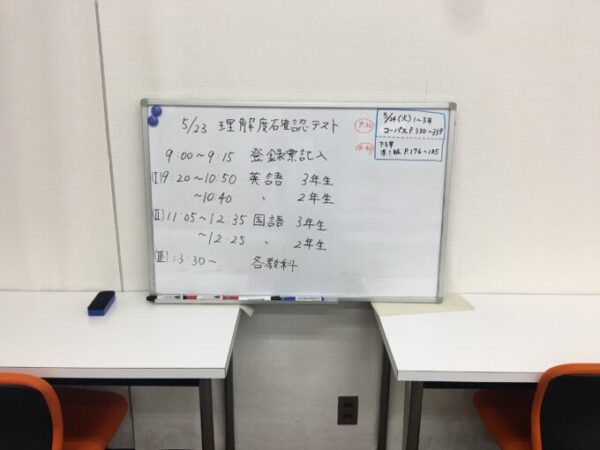 5/23 理解度確認テスト
9:00〜9:15 登録票記入
(Ⅰ) 9:20〜10:50 英語 3年生
〜10:40 〃 2年生
(Ⅱ) 11:05〜12:35 国語 3年生
〜12:25 〃 2年生
(Ⅲ) 13:30〜 各教科
5/24(火) 1〜3年
コーパス P330〜339
準1級 P176〜185